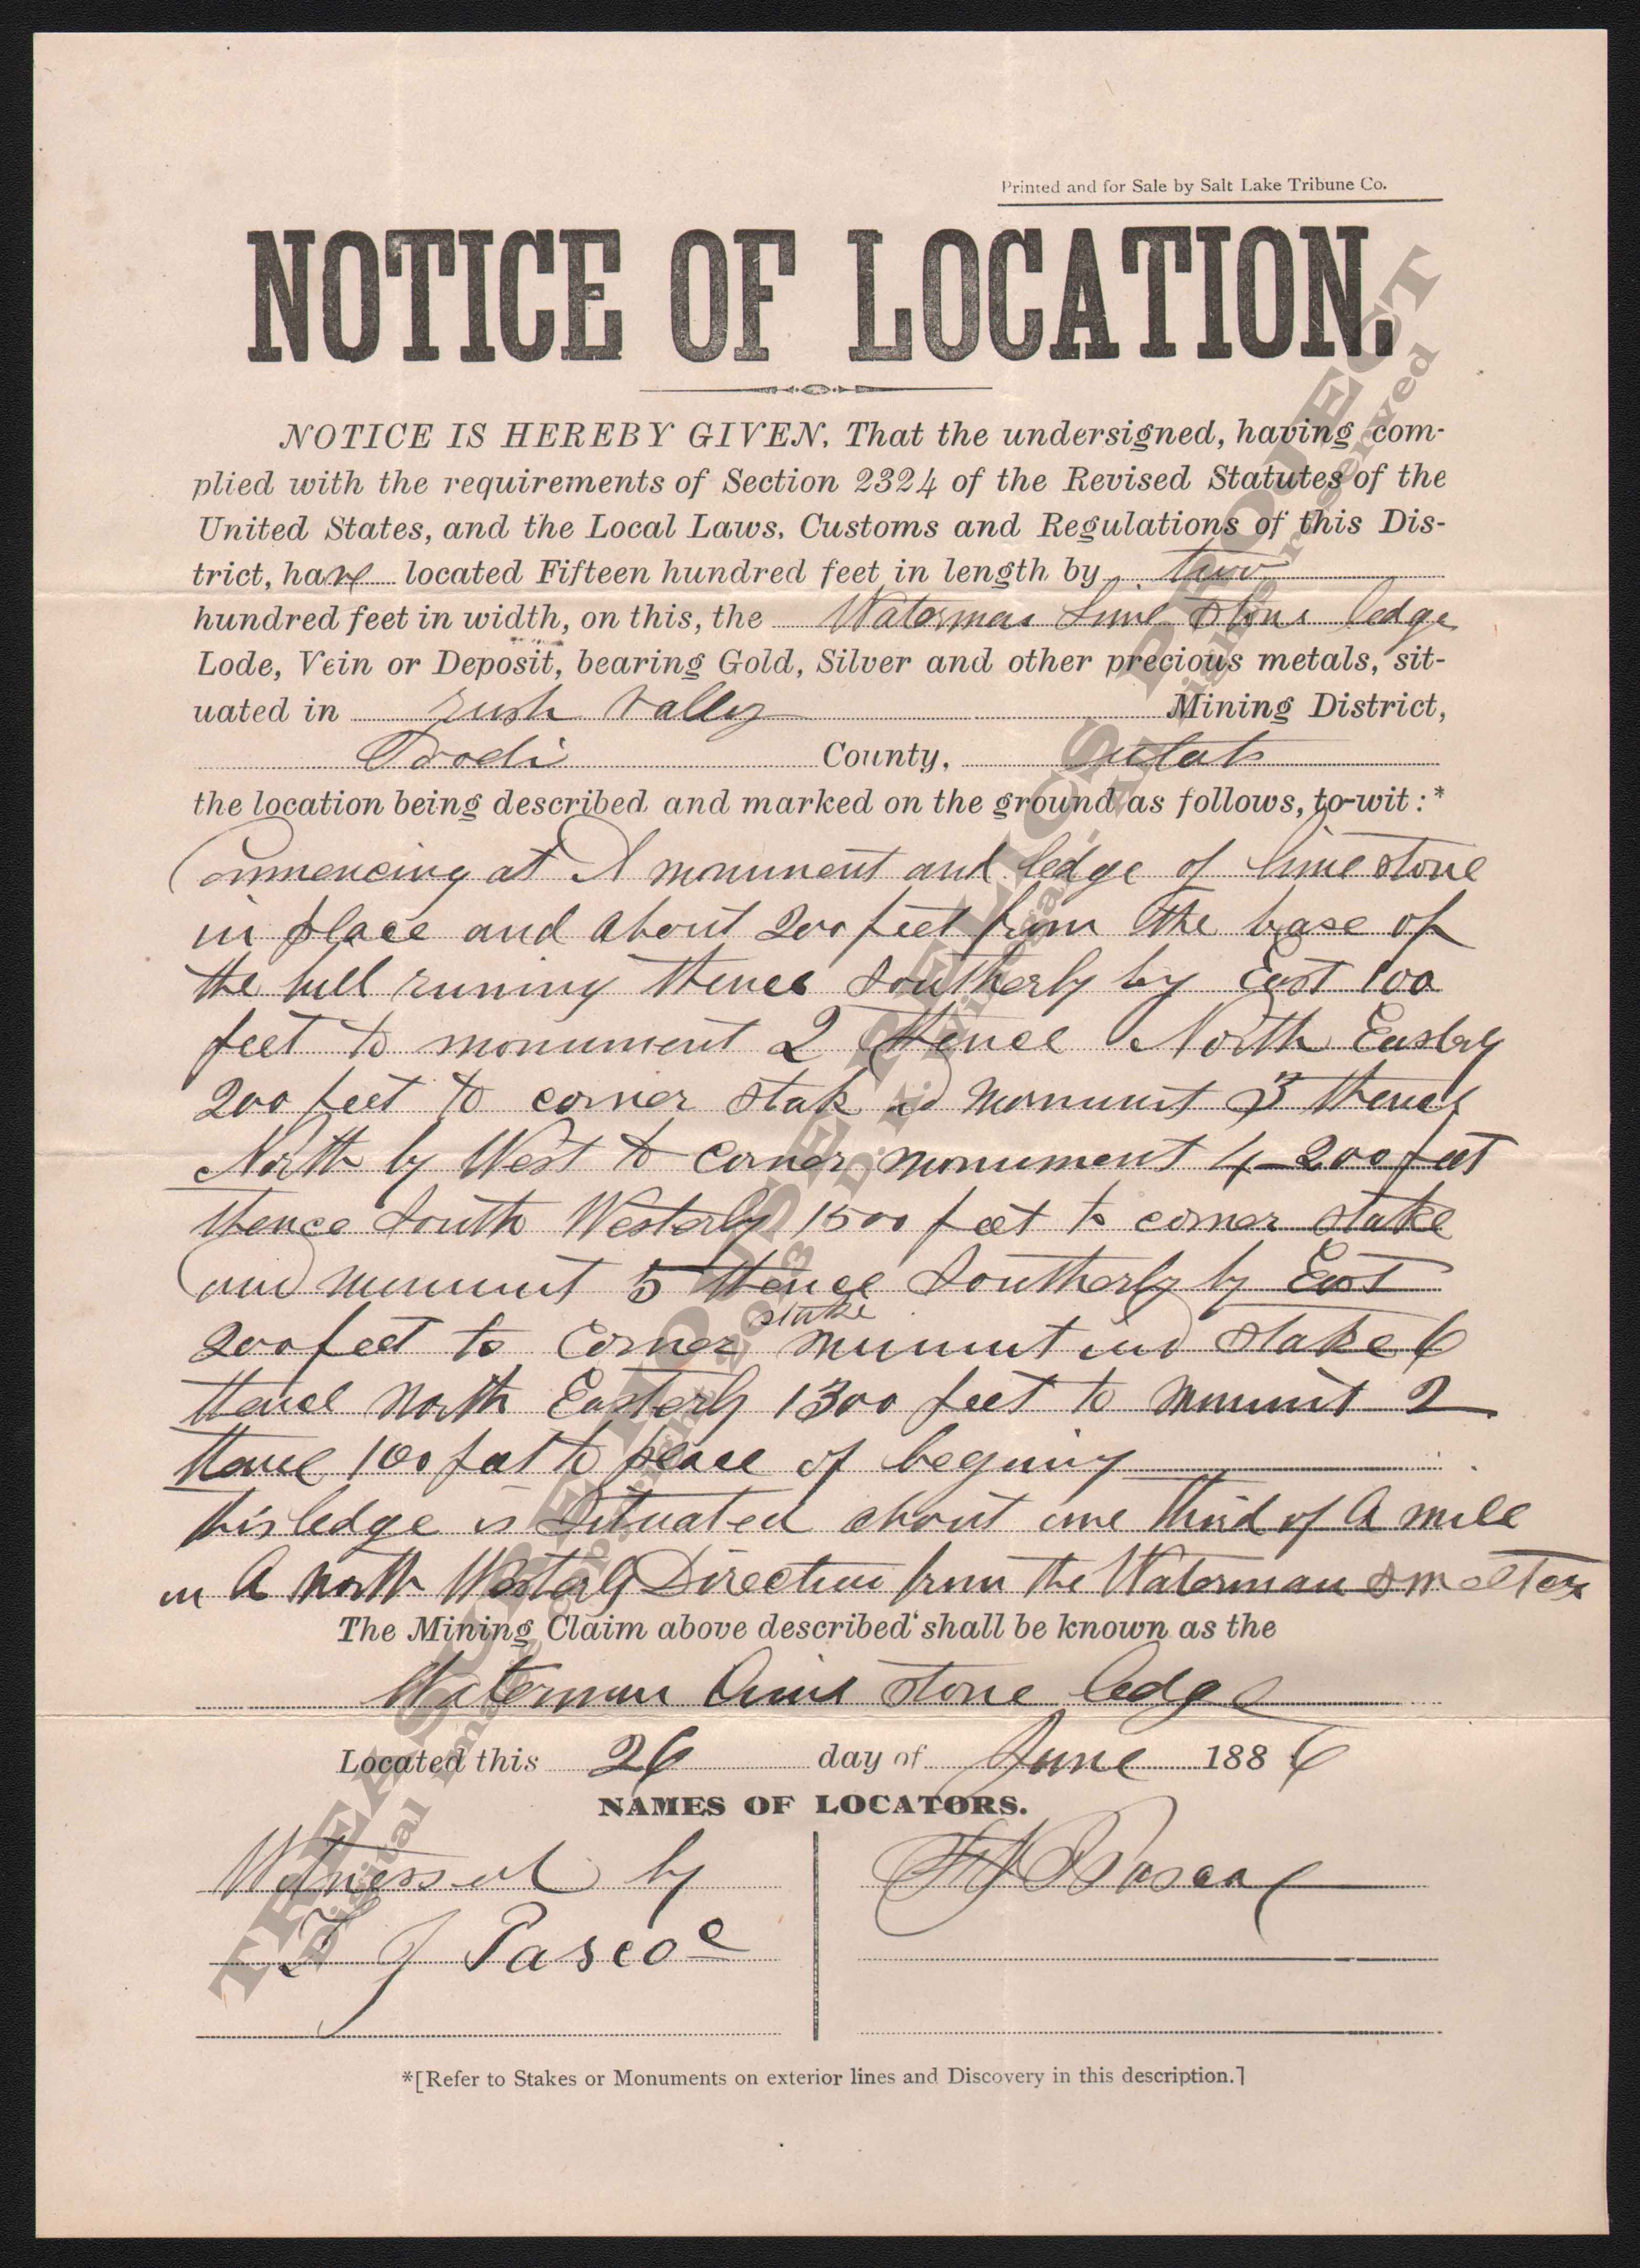 Printed and for Sale by Salt Lake Tribune Co.
NOTICE OF LOCATION.
NOTICE IS HEREBY GIVEN, That the undersigned, having com-
plied with the requirements of Section 2324 of the Revised Statutes of the
United States, and the Local Laws, Customs and Regulations of this Dis-
trict, have located Fifteen hundred feet in length by two
hundred feet in width, on this, the Waterman Lime stone ledge
Lode, Vein or Deposit, bearing Gold, Silver and other precious metals, sit-
uated in rush valley Mining District,
County, utah
the location being described and marked on the ground as follows, to-wit:*
Commencing at A monument and ledge of lime stone
in place and about 200 feet from the base of
the hill runing thence Southerly by East 100
feet to monument 2 thence North Easterly
200 feet to corner stak and monument 3 thence
North by West to corner monument 4 200 feet
thence South Westerly 1500 feet to corner stake
and monument 5 thence Southerly by East
200 feet to corner stake monument and stake 6
thence north Easterly 1300 feet to monument 2
thence 100 feet to place of begining
this ledge is Situated about one third of A mile
in A north Westerly Direction from the Waterman smelter
The Mining Claim above described shall be known as the
Waterman Lime stone ledge
Located this 26 day of June 1886
NAMES OF LOCATORS.
Witnessed by
J Pascoe
Pascoe
*[Refer to Stakes or Monuments on exterior lines and Discovery in this description.]
TREASURE HOUSE RELICS PROJECT
Digital Image Copyright 2013 D.K. All Rights Reserved